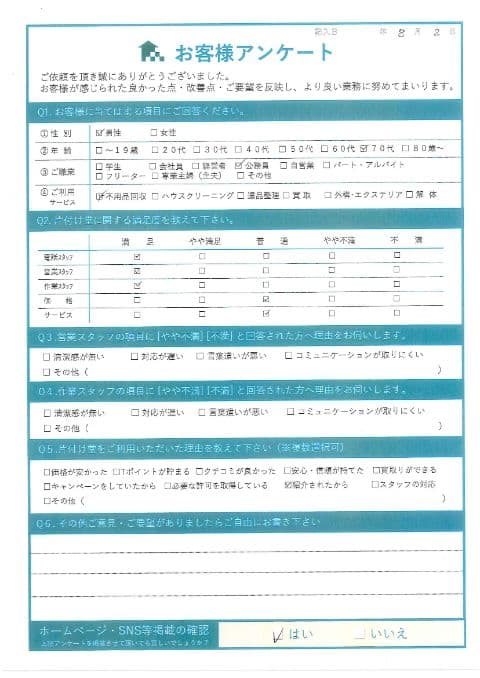 記入日　　年 8 月 2 日
お客様アンケート
ご依頼を頂き誠にありがとうございました。
お客様が感じられた良かった点・改善点・ご要望を反映し、より良い業務に努めてまいります。
Q1. お客様に当てはまる項目にご回答ください。
①性 別 ☑男性 □女性
②年 齢 □～19歳 □20代 □30代 □40代 □50代 □60代 ☑70代 □80歳～
③ご職業 □学生 □会社員 □経営者 ☑公務員 □自営業 □パート・アルバイト
□フリーター □専業主婦（主夫） □その他
④ご利用サービス ☑不用品回収 □ハウスクリーニング □遺品整理 □買取 □外構・エクステリア □解体
Q2. 片付け堂に関する満足度を教えて下さい。
満足 やや満足 普通 やや不満 不満
電話スタッフ ☑ □ □ □ □
営業スタッフ ☑ □ □ □ □
作業スタッフ ☑ □ □ □ □
価格 □ □ ☑ □ □
サービス □ □ ☑ □ □
Q3. 営業スタッフの項目に[やや不満][不満]と回答された方へ理由をお伺いします。
□清潔感が無い □対応が遅い □言葉遣いが悪い □コミュニケーションが取りにくい
□その他（ ）
Q4. 作業スタッフの項目に[やや不満][不満]と回答された方へ理由をお伺いします。
□清潔感が無い □対応が遅い □言葉遣いが悪い □コミュニケーションが取りにくい
□その他（ ）
Q5. 片付け堂をご利用いただいた理由を教えて下さい（※複数選択可）
□価格が安かった □Tポイントが貯まる □クチコミが良かった □安心・信頼が持てた □買取りができる
□キャンペーンをしていたから □必要な許可を取得している ☑紹介されたから □スタッフの対応
□その他（ ）
Q6. その他ご意見・ご要望がありましたらご自由にお書き下さい
ホームページ・SNS等掲載の確認 ☑はい □いいえ
上記アンケートを掲載させて頂いても宜しいでしょうか？